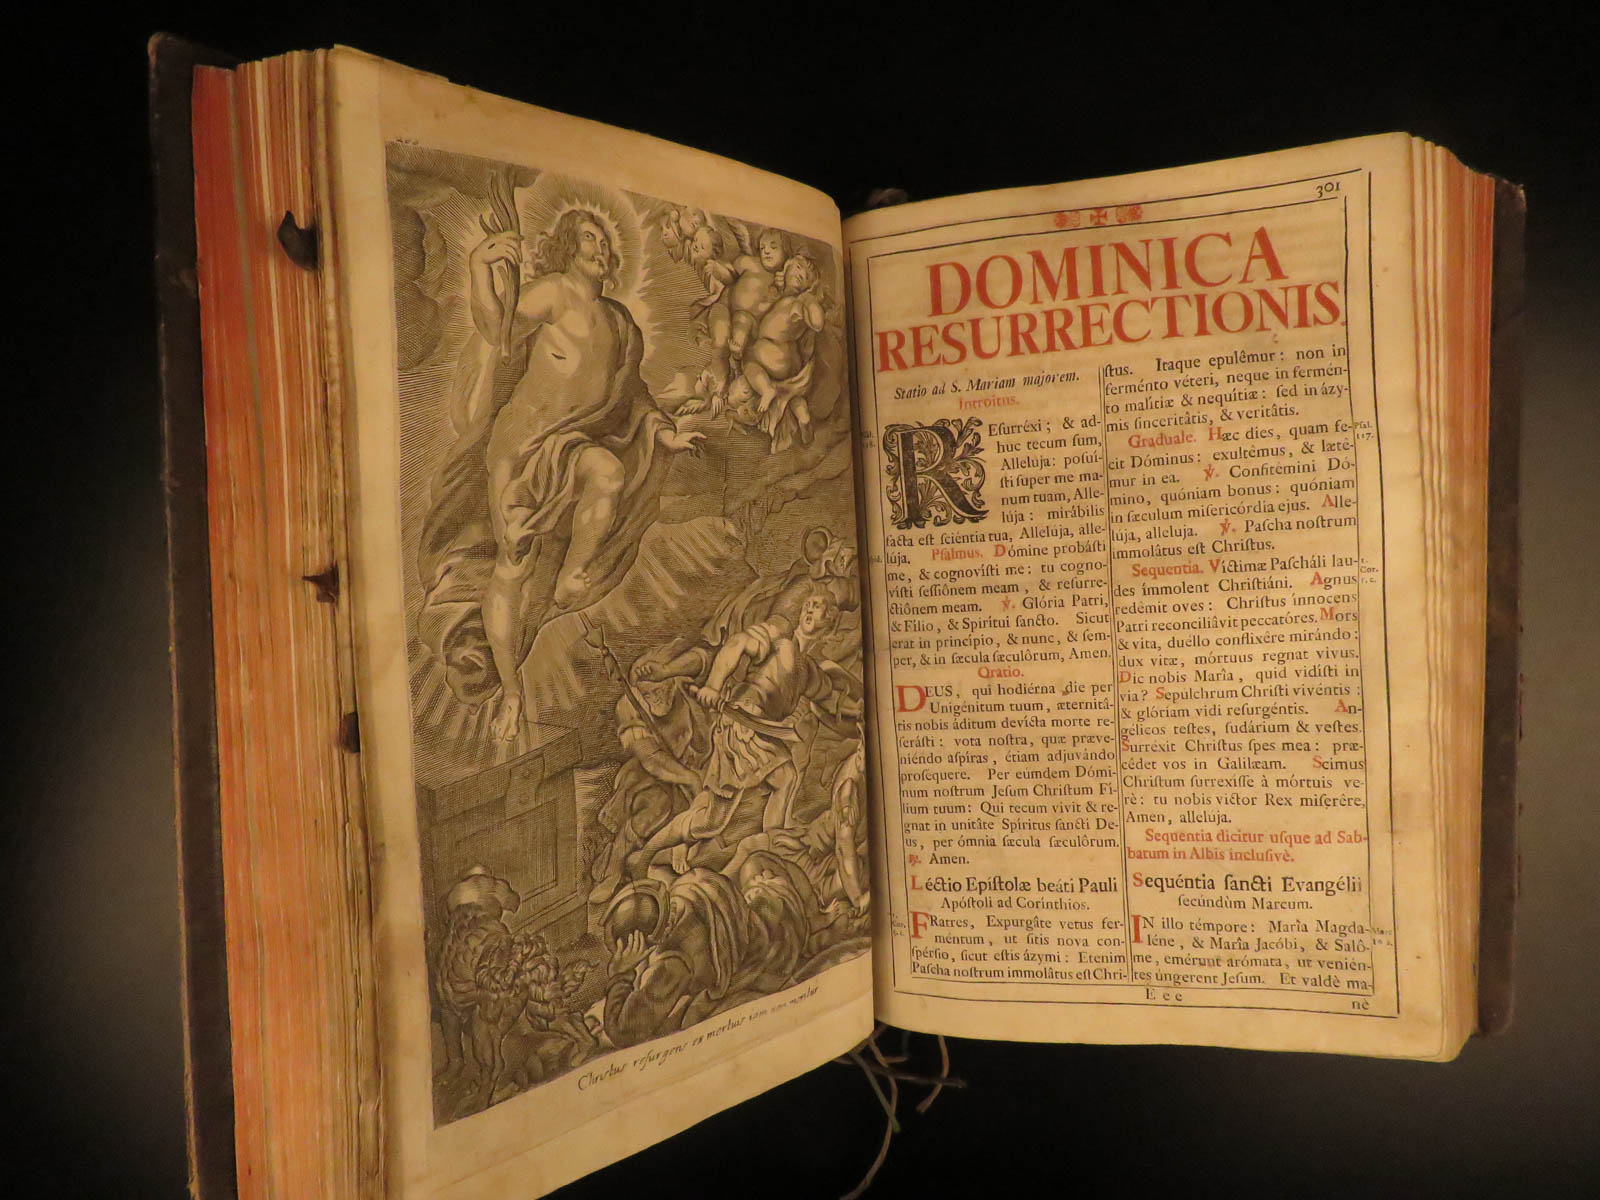 Christus resurgens ex mortuis iam non moritur
301
DOMINICA
RESURRECTIONIS.
Statio ad S. Mariam majorem.
Introitus.
REſurréxi; & ad-
huc tecum ſum,
Allelúja: poſuí-
ſti ſuper me ma-
num tuam, Alle-
lúja: mirábilis
facta eſt ſciéntia tua, Allelúja, alle-
lúja. Pſalmus. Dómine probáſti
me, & cognovíſti me: tu cogno-
víſti ſeſſiônem meam, & reſurre-
ctiônem meam. ℣. Glória Patri,
& Fílio, & Spirítui ſancto. Sicut
erat in princípio, & nunc, & ſem-
per, & in ſæcula ſæculôrum, Amen.
Oratio.
DEUS, qui hodiérna die per
Unigénitum tuum, æternitâ-
tis nobis áditum devícta morte re-
ſeráſti: vota noſtra, quæ præve-
niéndo aſpiras, étiam adjuvándo
proſequere. Per eúmdem Dómi-
num noſtrum Jeſum Chriſtum Fí-
lium tuum: Qui tecum vivit & re-
gnat in unitâte Spíritus ſancti De-
us, per ómnia ſæcula ſæculôrum.
℟. Amen.
Léctio Epíſtolæ beáti Pauli
Apóſtoli ad Corínthios.
FRatres, Expurgâte vetus fer-
méntum, ut ſitis nova con-
ſpérſio, ſicut eſtis ázymi: Etenim
Paſcha noſtrum immolâtus eſt Chri-
ſtus. Itaque epulêmur: non in
ferménto véteri, neque in fermén-
to malítiæ & nequítiæ: ſed in ázy-
mis ſinceritâtis, & veritâtis.
Graduale. Hæc dies, quam fe-
cit Dóminus: exultêmus, & lætê-
mur in ea. ℣. Confitémini Dó-
mino, quóniam bonus: quóniam
in ſæculum miſericórdia ejus. Alle-
lúja, alleluja. ℣. Paſcha noſtrum
immolâtus eſt Chriſtus.
Sequentia. Víctimæ Paſcháli lau-
des ímmolent Chriſtiáni. Agnus
redêmit oves: Chriſtus ínnocens
Patri reconciliâvit peccatóres. Mors
& vita, duéllo conflixêre mirándo:
dux vitæ, mórtuus regnat vivus.
Dic nobis Marìa, quid vidíſti in
via? Sepúlchrum Chriſti vivéntis:
& glóriam vidi reſurgéntis. An-
gélicos teſtes, ſudárium & veſtes.
Surréxit Chriſtus ſpes mea: præ-
cédet vos in Galilæam. Scimus
Chriſtum ſurrexíſſe à mórtuis ve-
rè: tu nobis victor Rex miſerêre,
Amen, alleluja.
Sequentia dicitur uſque ad Sab-
batum in Albis incluſivè.
Sequéntia ſancti Evangélii
ſecúndùm Marcum.
IN illo témpore: Marìa Magda-
léne, & Marìa Jacóbi, & Salô-
me, emérunt arómata, ut venién-
tes úngerent Jeſum. Et valdè ma-
Pſal.
117.
1.
Cor.
5. c.
Marc
E e e
nè